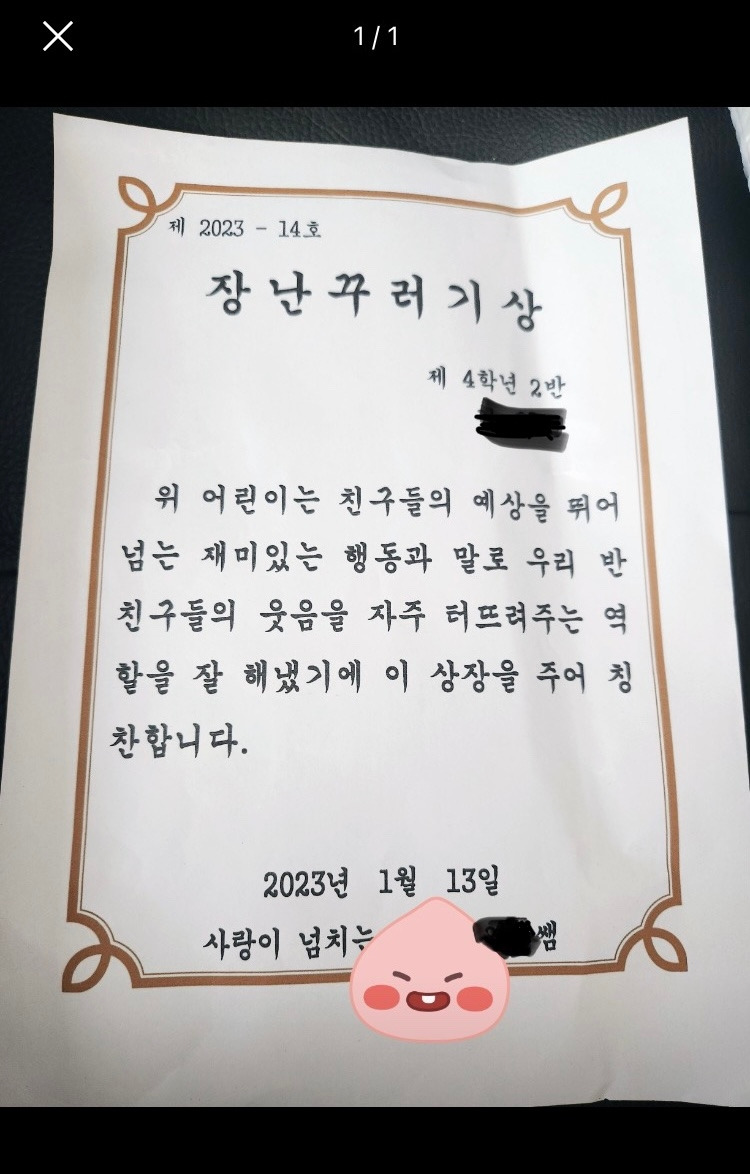 1/1
제 2023 - 14호
장난꾸러기상
제 4학년 2반
위 어린이는 친구들의 예상을 뛰어
넘는 재미있는 행동과 말로 우리 반
친구들의 웃음을 자주 터뜨려주는 역
할을 잘 해냈기에 이 상장을 주어 칭
찬합니다.
2023년 1월 13일
사랑이 넘치는 쌤